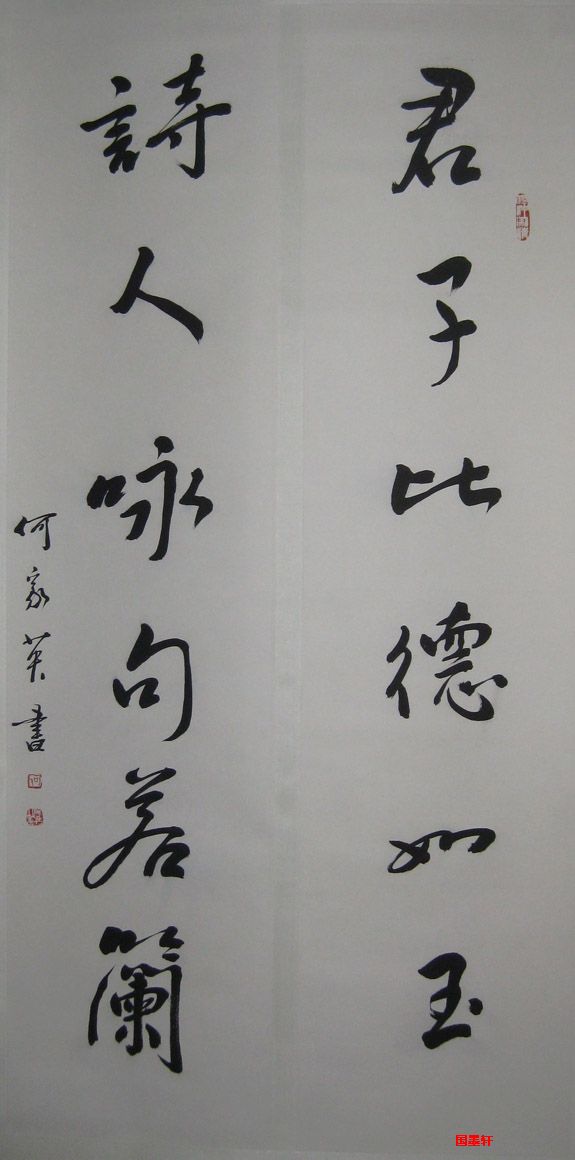 君子比德如玉
詩人咏句若蘭
何家英書
何
国墨轩